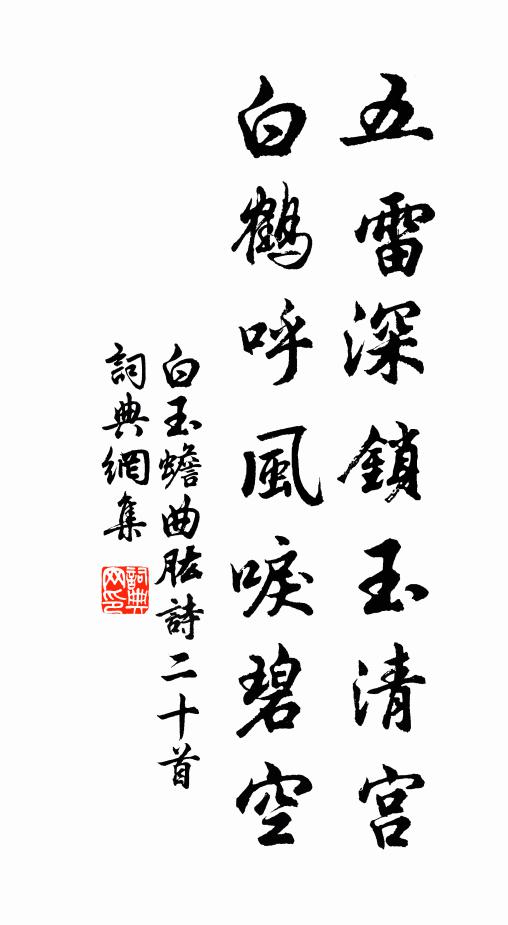 五雷深鎖玉清宮
白鶴呼風唳碧空
白玉蟾曲肱詩二十首
詞典網集
詞典
網印